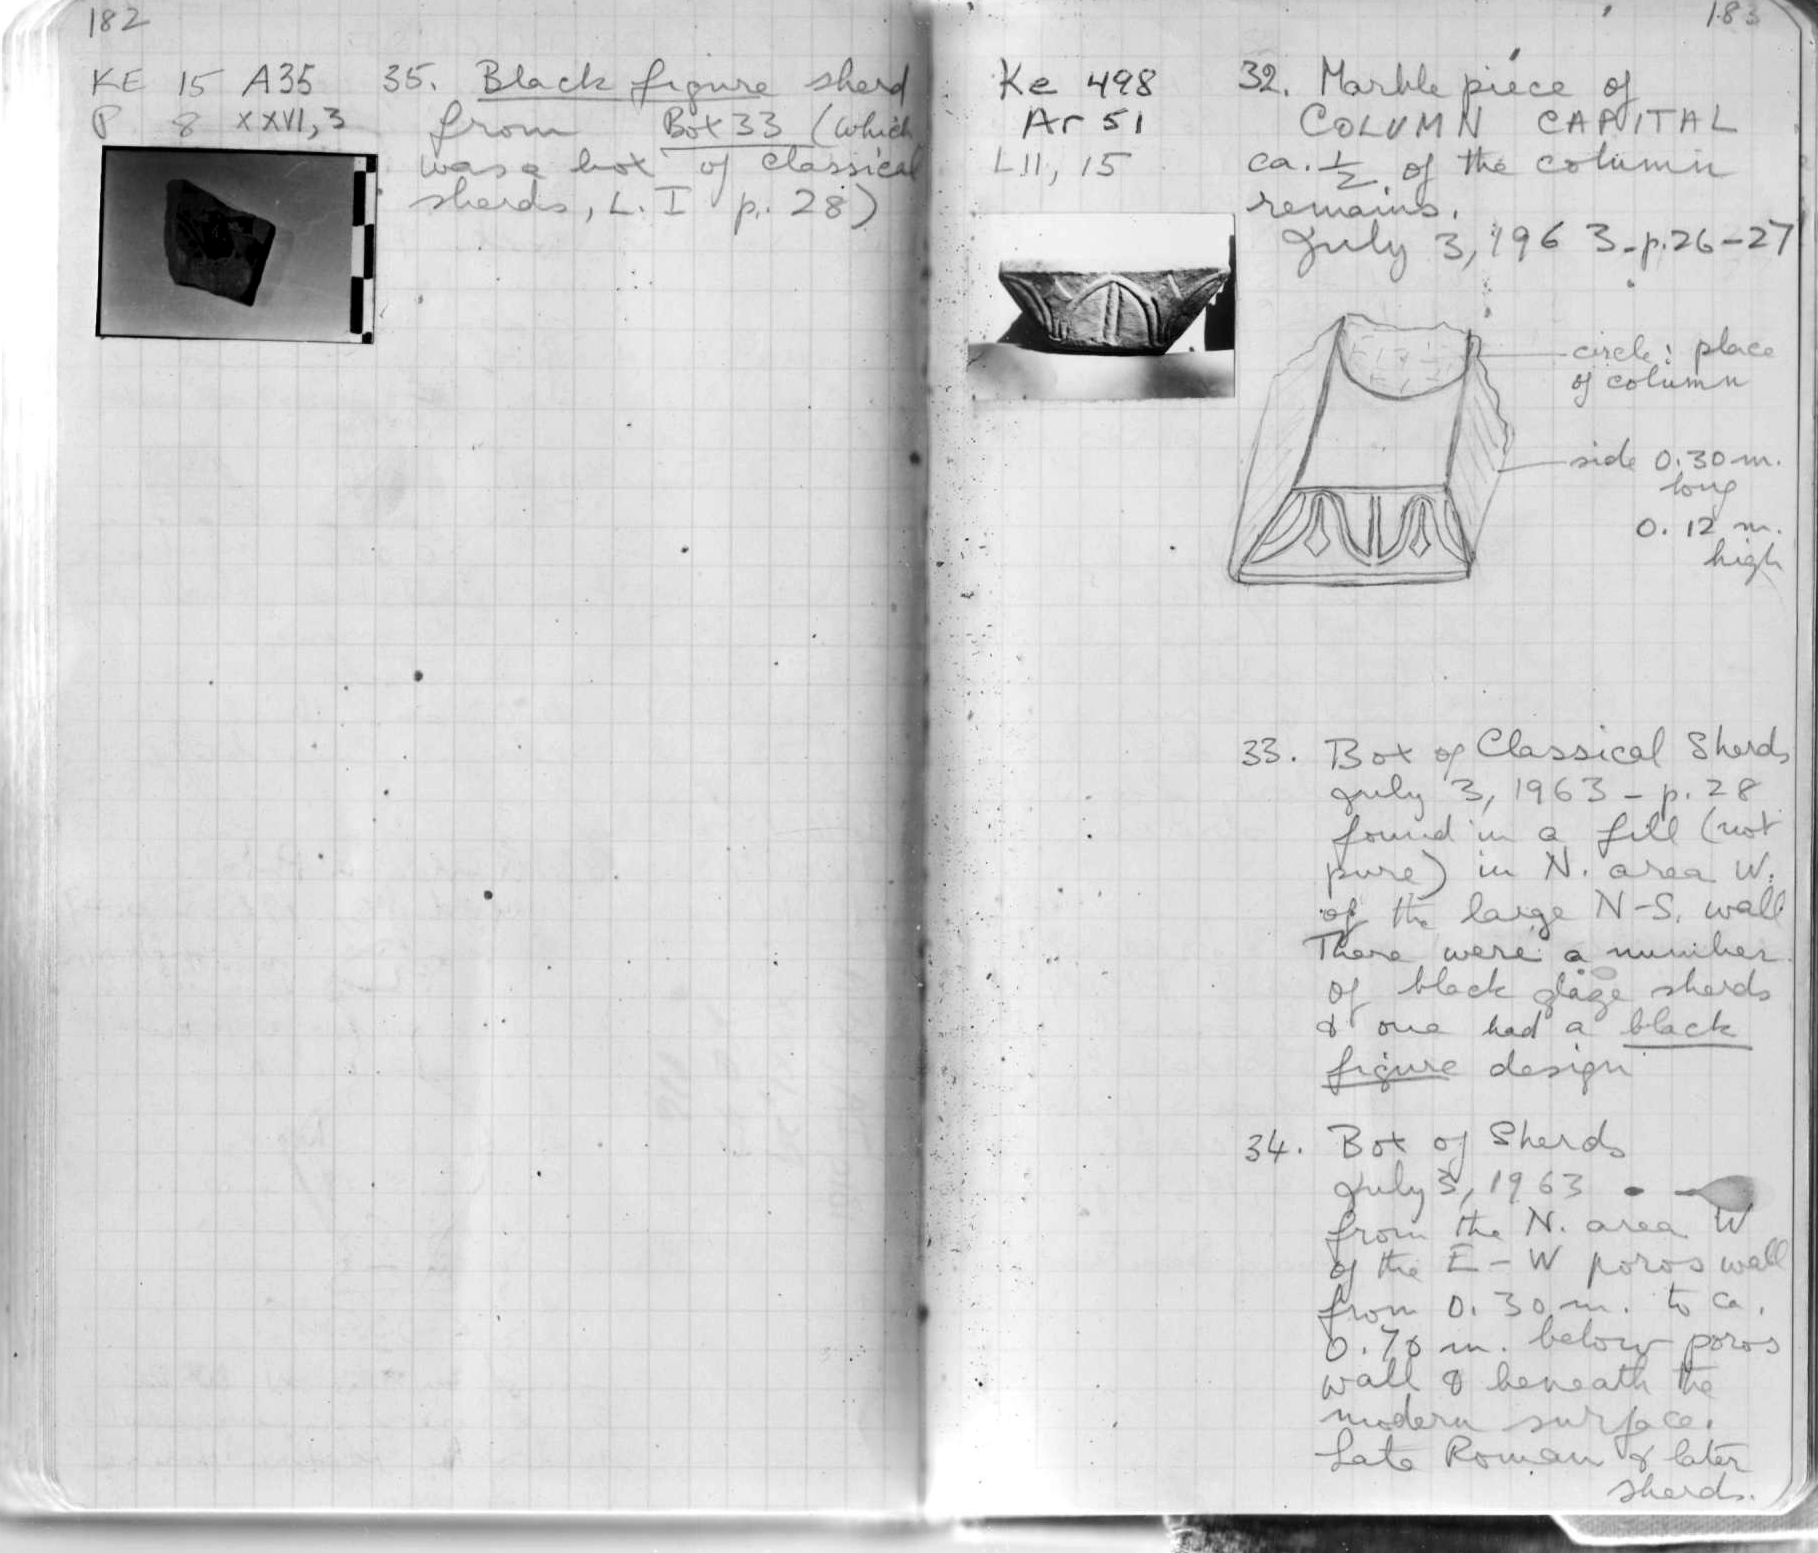 182
KE 15 A35
P 8 XXVI, 3
35. Black figure sherd
from Box 33 (which
was a box of classical
sherds, L. I p. 28)
183
Ke 498
Ar 51
LII, 15
32. Marble piece of
COLUMN CAPITAL
ca. 1/2 of the column
remains.
July 3, 1963 - p. 26-27
circle: place
of column
side 0.30 m.
long
0.12 m.
high
33. Box of Classical Sherds
July 3, 1963 - p. 28
found in a fill (not
pure) in N. area W.
of the large N-S. wall
There were a number
of black glaze sherds
& one had a black
figure design
34. Box of Sherds
July 3, 1963
from the N. area W
of the E-W poros wall
from 0.30 m. to ca.
0.70 m. below poros
wall & beneath the
modern surface.
Late Roman & later
sherds.